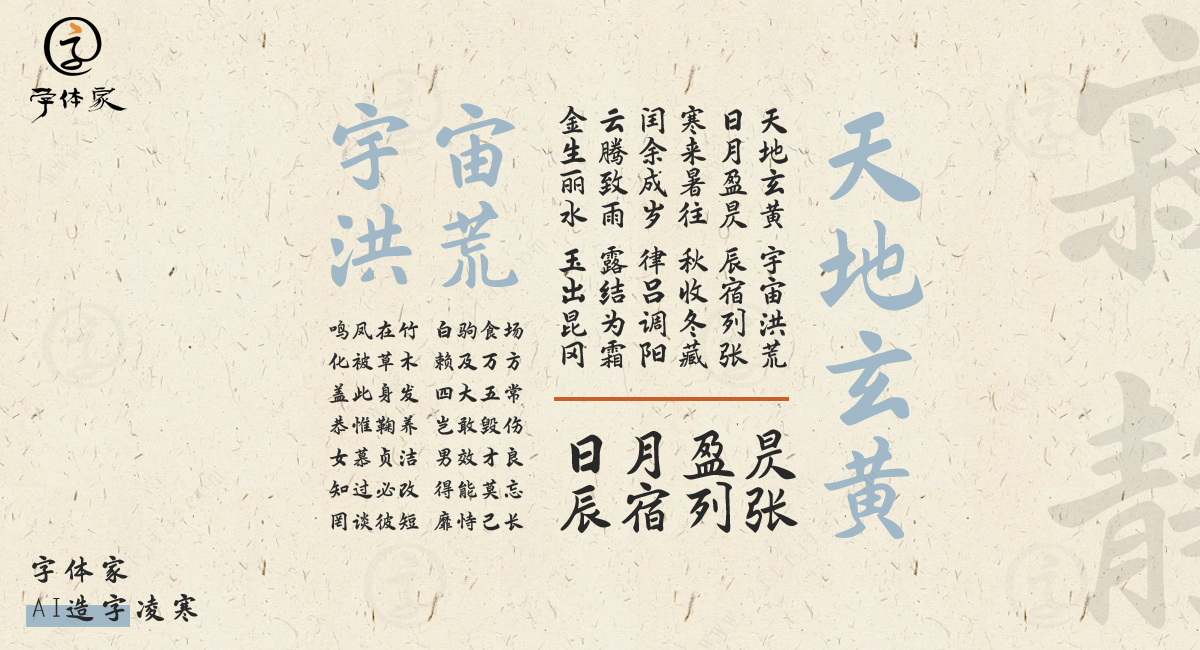 字体家
寂静
天地玄黄
天地玄黄 宇宙洪荒
日月盈昃 辰宿列张
寒来暑往 秋收冬藏
闰余成岁 律吕调阳
云腾致雨 露结为霜
金生丽水 玉出昆冈
日月盈昃
辰宿列张
宇宙
洪荒
鸣凤在竹 白驹食场
化被草木 赖及万方
盖此身发 四大五常
恭惟鞠养 岂敢毁伤
女慕贞洁 男效才良
知过必改 得能莫忘
罔谈彼短 靡恃己长
字体家
AI造字凌寒